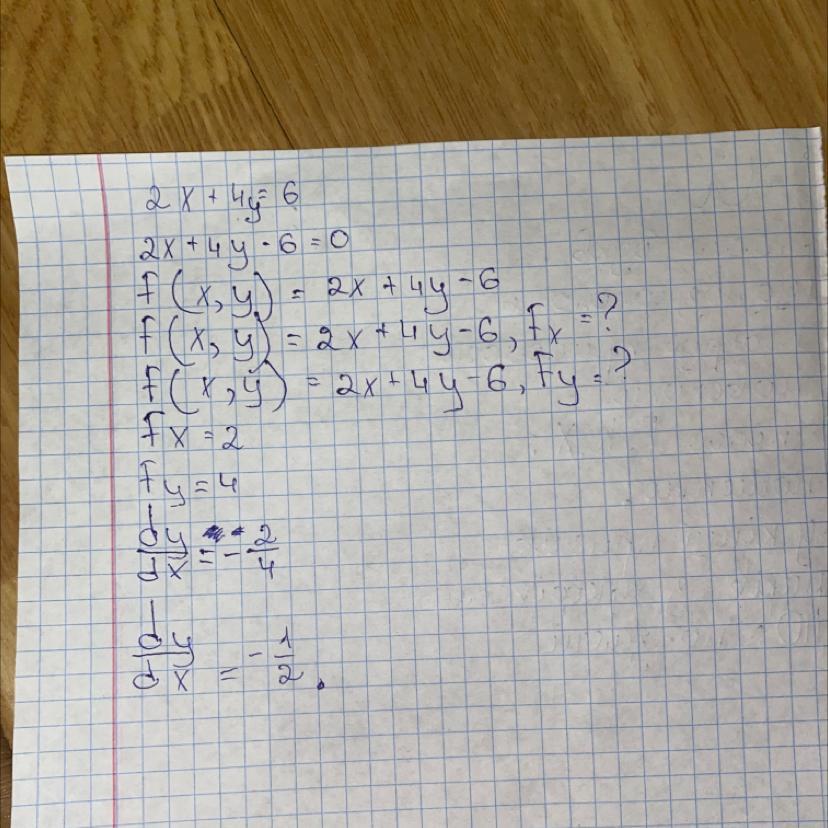 2x + 4y = 6
2x + 4y - 6 = 0
F(x, y) = 2x + 4y - 6
F(x, y) = 2x + 4y - 6, Fx = ?
F(x, y) = 2x + 4y - 6, Fy = ?
Fx = 2
Fy = 4
dy/dx = - 2/4
dy/dx = - 1/2.